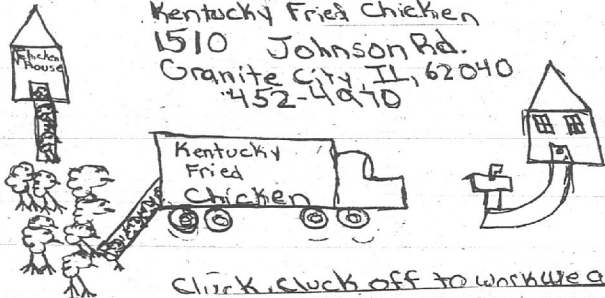 Kentucky Fried Chicken
1510 Johnson Rd.
Granite City, Il, 62040
452-4970
Chicken
House
Kentucky
Fried
Chicken
Cluck, Cluck off to work we